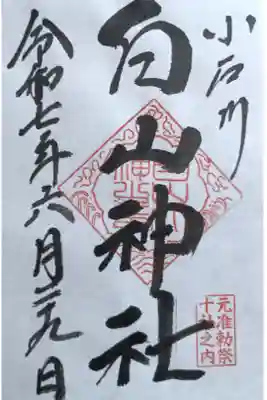 小石川
白山神社
元准勅祭
十社之内
令和七年六月二九日